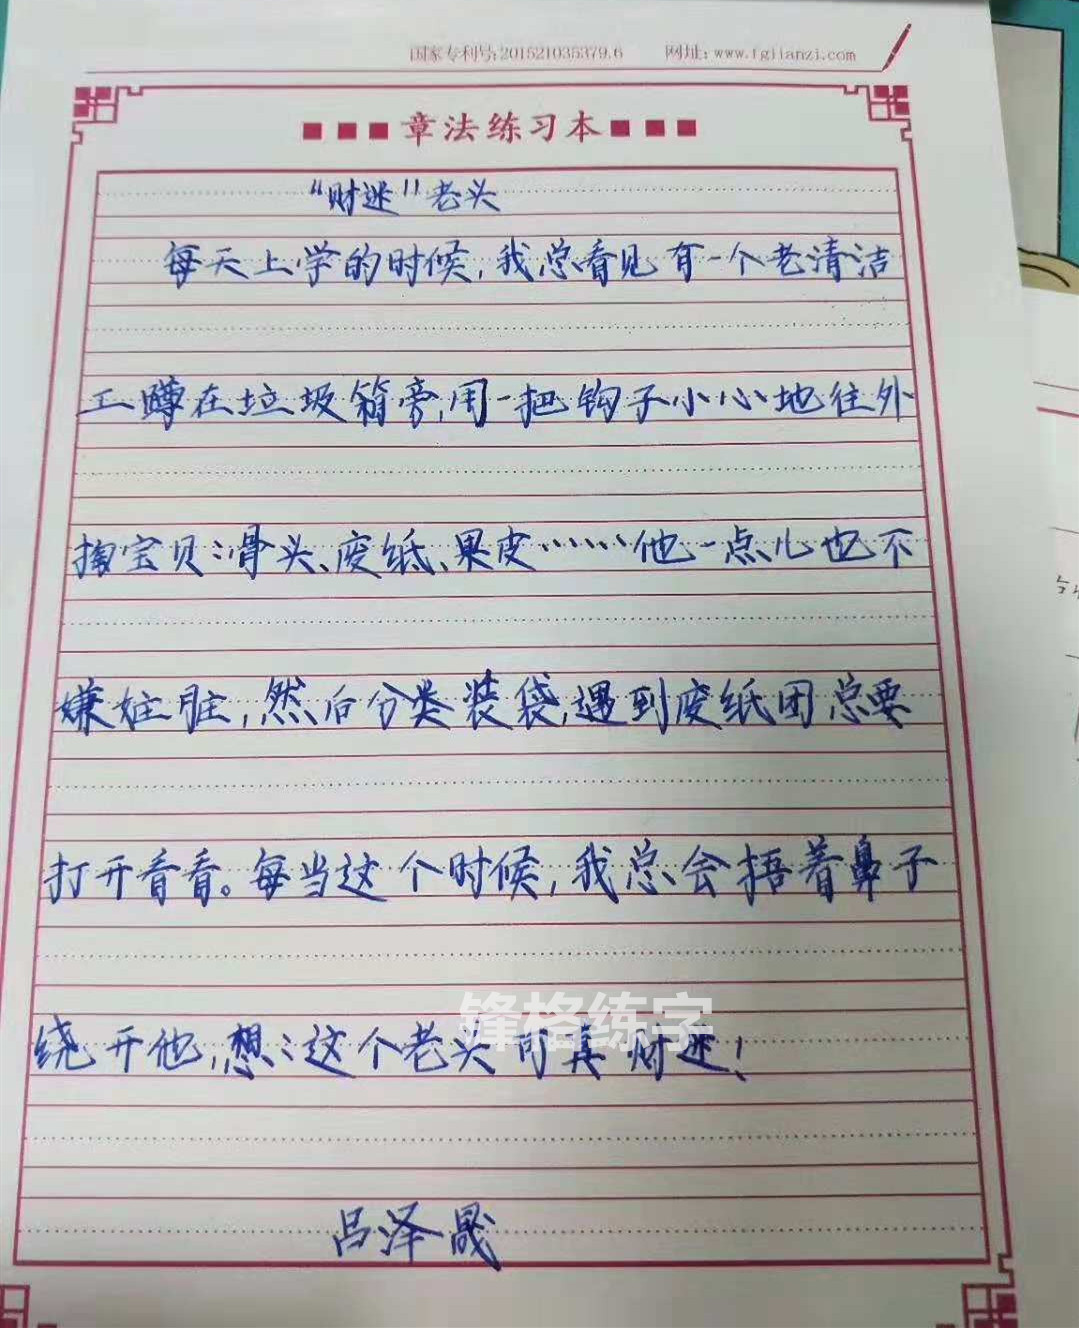 国家专利号:201521035379.6 网址:www.fglianzi.com
章法练习本
“财迷”老头
每天上学的时候,我总看见有一个老清洁
工蹲在垃圾箱旁,用一把钩子小心地往外
掏宝贝:骨头、废纸、果皮……他一点儿也不
嫌脏,然后分类装袋,遇到废纸团总要
打开看看。每当这个时候,我总会捂着鼻子
绕开他,想:这个老头可真财迷!
锋格练字
吕泽晟